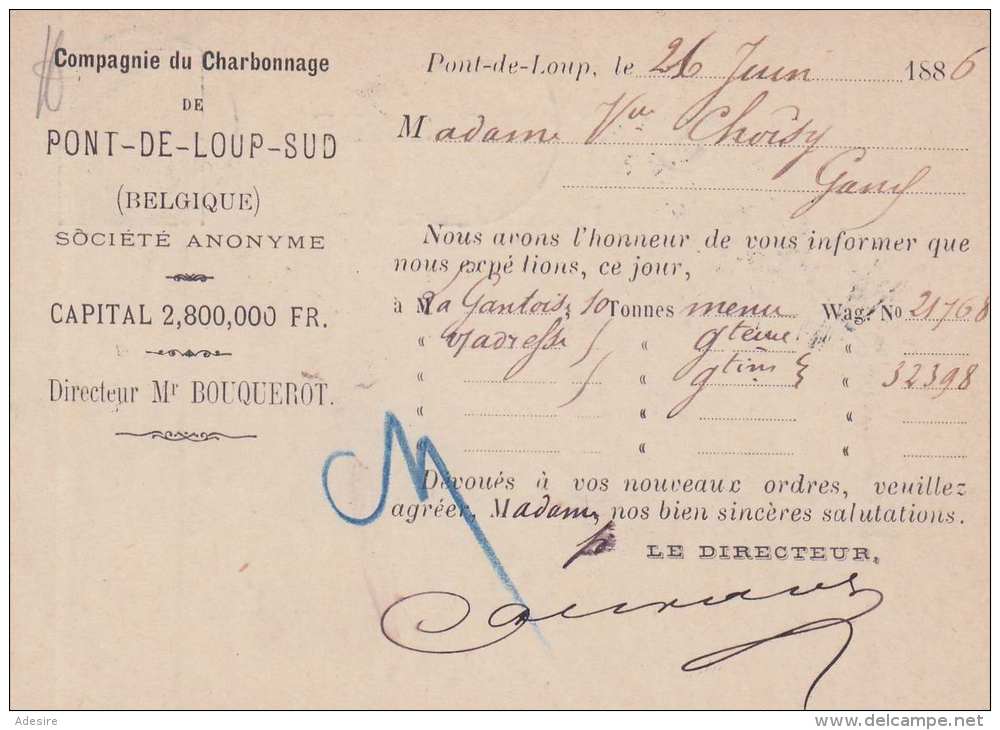 Compagnie du Charbonnage
DE
PONT-DE-LOUP-SUD
(BELGIQUE)
SOCIÉTÉ ANONYME
CAPITAL 2,800,000 FR.
Directeur Mr BOUQUEROT.
Pont-de-Loup, le 26 Juin 1886
Madame Vve Choisy
Gand
Nous avons l'honneur de vous informer que
nous expédions, ce jour,
à M Gantois, 10 Tonnes menu Wag. No 21768
" v/adresse " "
" " " 32398
" " "
" " "
Dévoués à vos nouveaux ordres, veuillez
agréer, Madame, nos bien sincères salutations.
p LE DIRECTEUR,
Adesire
delcampe.net